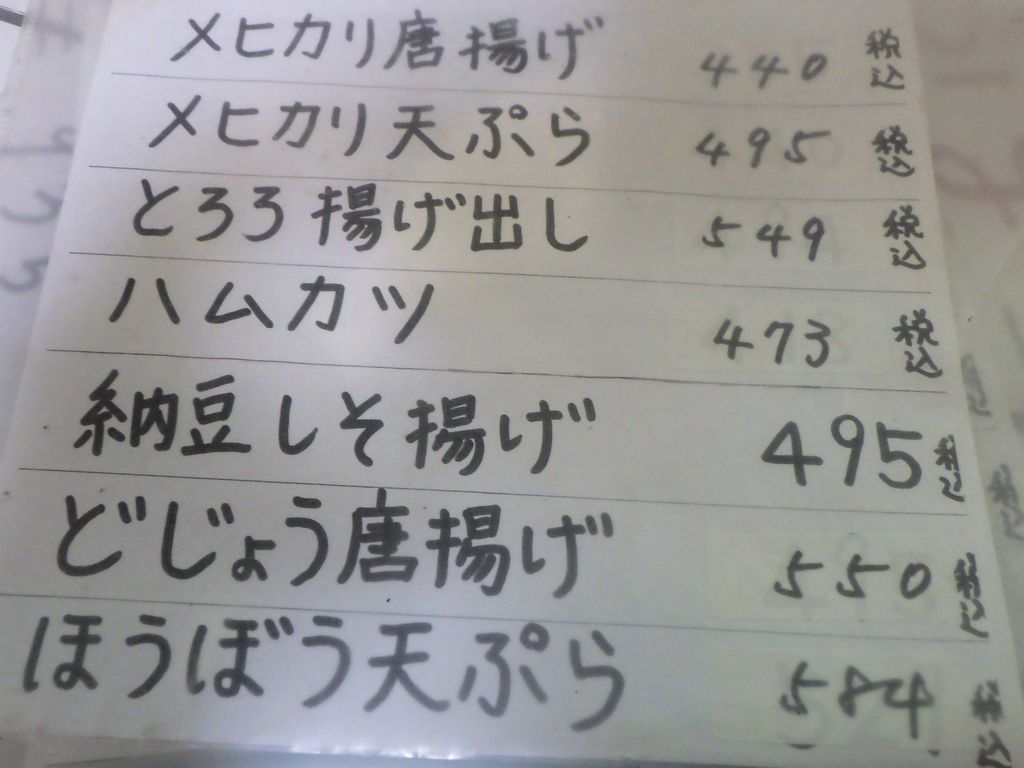 メヒカリ唐揚げ 440 税込
メヒカリ天ぷら 495 税込
とろろ揚げ出し 549 税込
ハムカツ 473 税込
納豆しそ揚げ 495 税込
どじょう唐揚げ 550 税込
ほうぼう天ぷら 584 税込